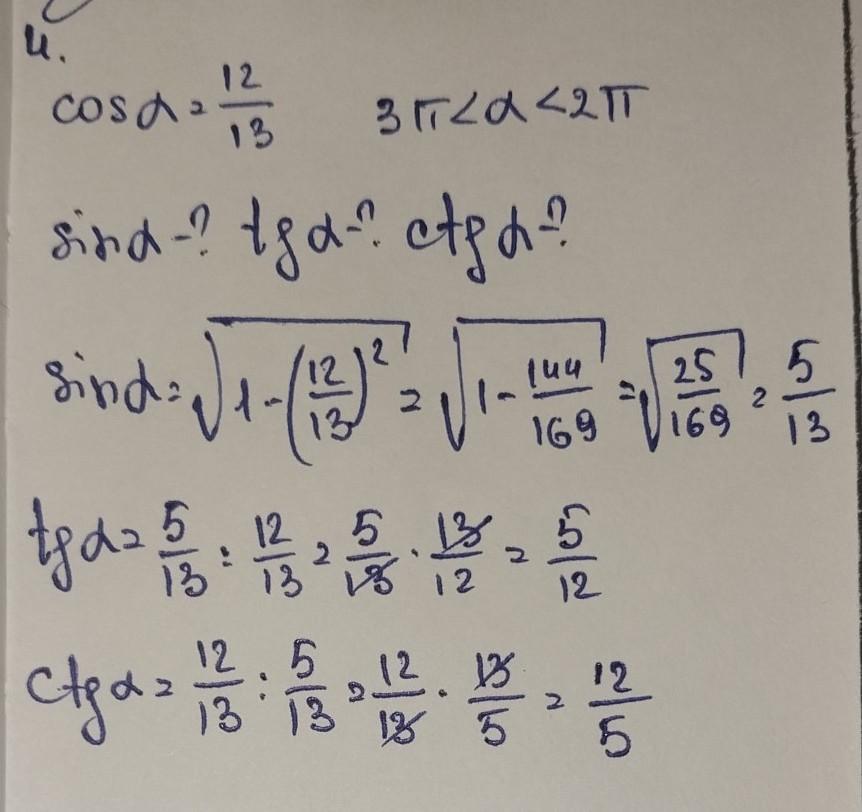 4.
cos α = 12/13 3π < α < 2π
sin α - ? tg α - ? ctg α - ?
sin α = √(1 - (12/13)²) = √(1 - 144/169) = √(25/169) = 5/13
tg α = 5/13 : 12/13 = 5/13 · 13/12 = 5/12
ctg α = 12/13 : 5/13 = 12/13 · 13/5 = 12/5